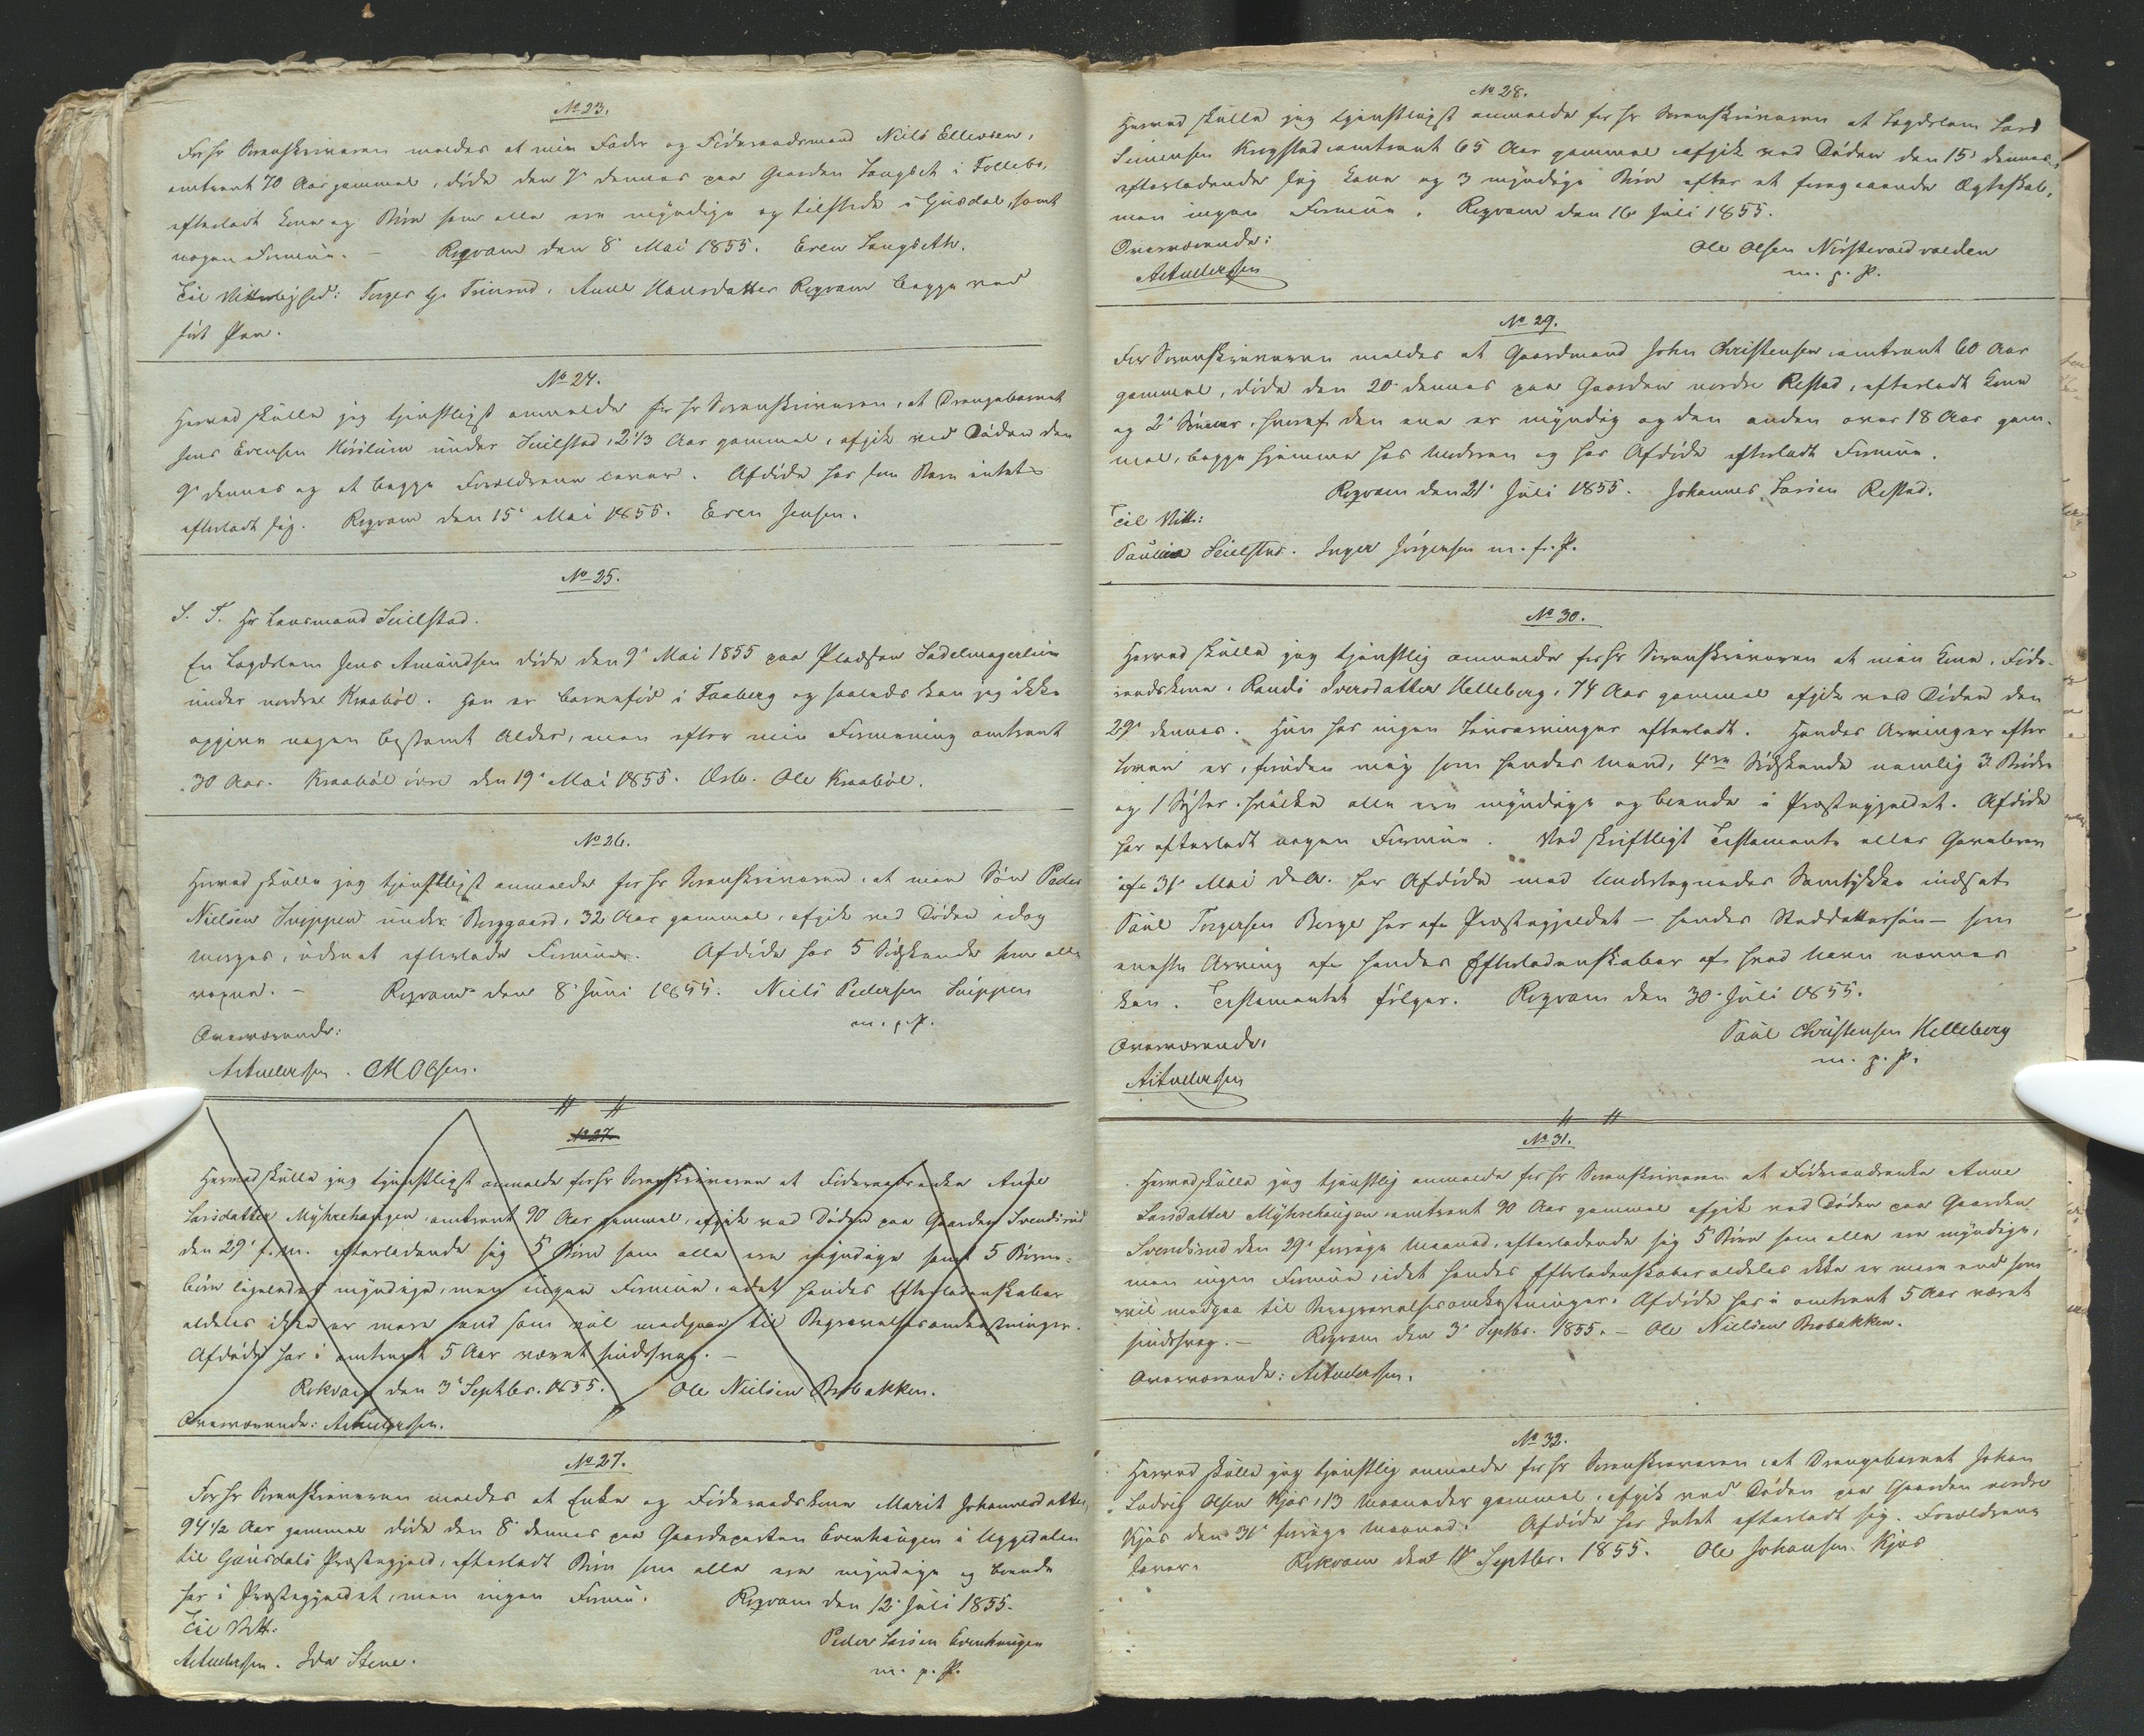 No 23.
For Hr Sorenskriveren meldes at min Fader og Føderaadsmand Niels Ellevsen,
omtrent 70 Aar gammel, døde den 7de dennes paa Gaarden Langset i Follebo,
efterladt Kone og Børn som alle ere myndige og tilstede i Gusdal, samt
nogen Formue. – Roqvam den 8de Mai 1855. Even Langseth.
Til Vitterlighed: Torger Trinrud. Anne Hansdatter Roqvam begge med
ført Pen.
No 24.
Herved skulle jeg tjenstligst anmelde for Hr Sorenskriveren, at Drengebarnet
Jens Evensen under Suilstad, 2 1/3 Aar gammel, afgik ved Døden den
9de dennes og at begge Forældrene lever. Afdøde har som Barn intet
efterladt sig. Roqvam den 15de Mai 1855. Even Jensen.
No 25.
S. T. Hr Lensmand Suilstad.
En Lægdslem Jens Amundsen døde den 9de Mai 1855 paa Pladsen Sadelmagerlien
under nordre Kraabøl. Han er barnefød i Faaberg og saaledes kan jeg ikke
opgive nogen bestemt Alder, men efter min Formening omtrent
30 Aar. Kraabøl øvre den 19de Mai 1855. Ærb. Ole Kraabøl.
No 26.
Herved skulle jeg tjenstligst anmelde for Hr Sorenskriveren, at min Søn Peder
Nielsen Suippen under Berggaard, 32 Aar gammel, afgik ved Døden idag
morges, uden at efterlade Formue. Afdøde har 5 Sødskende som alle
voxne. – Roqvam den 8de Juni 1855. Niels Pedersen Suippen
m. f. P.
Overværende:
A Andersen. CM Olsen.
No 27.
Herved skulle jeg tjenstligst anmelde for Hr Sorenskriveren at Føderaadsenke Anne
Larsdatter Myhrehaugen omtrent 90 Aar gammel, afgik ved Døden paa Gaarden Svendsrud
den 29de f. M. efterladende sig 5 Børn som alle ere myndige samt 5 Børne-
børn ligeledes myndige, men ingen Formue, idet hendes Efterladenskaber
aldeles ikke er mere end som vil medgaae til Begravelsesomkostninger.
Afdøde har i omtrent 5 Aar været sindssvag. –
Rokvam den 3de Septbr. 1855. Ole Nielsen Brobakken.
Overværende: A Andersen.
No 27.
For Hr Sorenskriveren meldes at Enke og Føderaadskone Marit Johannesdatter,
94 1/2 Aar gammel døde den 8de dennes paa Gaardeparten Evenhaugen i Uggedalen
til Gausdals Præstegjæld, efterladt Børn som alle ere myndige og boende
her i Præstegjældet, men ingen Formue. Roqvam den 12te Juli 1855.
Til Vitt: Peder Larsen Evenhaugen
A Andersen. Ida Stene. m. p. P.
No 28.
Herved skulle jeg tjenstligst anmelde for Hr Sorenskriveren at Lægdslem Lars
Simensen Krogstad omtrent 65 Aar gammel afgik ved Døden den 15de dennes,
efterladende sig Kone og 3 myndige Børn efter et foregaaende Ægteskab,
men ingen Formue. Roqvam den 16de Juli 1855.
Overværende: Ole Olsen
A Andersen m. p. P.
No 29.
For Sorenskriveren meldes at Gaardmand John Christensen omtrent 60 Aar
gammel, døde den 20de dennes paa Gaarden nordre Restad, efterladt Kone
og 2de Sønner, hvoraf den ene er myndig og den anden over 18 Aar gam-
mel, begge hjemme hos Moderen og har Afdøde efterladt Formue.
Roqvam den 21de Juli 1855. Johannes Larsen Restad.
Til Vitt:
Pauline Suilstad. Inger Jørgensen m. f. P.
No 30.
Herved skulle jeg tjenstlig anmelde for Hr Sorenskriveren at min Kone, Føde-
raadskone, Randi Iversdatter Helleberg, 74 Aar gammel afgik ved Døden den
29de dennes. Hun har ingen Livsarvinger efterladt. Hendes Arvinger efter
Loven er, foruden mig som hendes Mand, 4re Sødskende nemlig 3 Brødre
og 1 Søster, hvilke alle ere myndige og boende i Præstegjeldet. Afdøde
har efterladt nogen Formue. Ved skriftligt Testamente eller Gavebrev
af 31de Mai d. A. har Afdøde med Undertegnedes Samtykke indsat
Paul Torgersen Berge her af Præstegjeldet – hendes Steddattersøn – som
eneste Arving af hendes Efterladenskaber af hvad Navn nævnes
kan. Testamentet følger. Roqvam den 30te Juli 1855.
Overværende: Paul Christensen Helleberg
A Andersen m. p. P.
No 31.
Herved skulle jeg tjenstlig anmelde for Hr Sorenskriveren at Føderaadsenke Anne
Larsdatter Myhrehaugen omtrent 90 Aar gammel afgik ved Døden paa Gaarden
Svendsrud den 29de forrige Maaned, efterladende sig 5 Børn som alle ere myndige,
men ingen Formue, idet hendes Efterladenskaber aldeles ikke er mere end som
vil medgaa til Begravelsesomkostninger. Afdøde har i omtrent 5 Aar været
sindssvag. – Roqvam den 3de Septbr. 1855. – Ole Nielsen Brobakken.
Overværende: A Andersen.
No 32.
Herved skulle jeg tjenstlig anmelde for Hr Sorenskriveren, at Drengebarnet Johan
Ludvig Olsen Kjøs, 13 Maaneder gammel, afgik ved Døden paa Gaarden nordre
Kjøs den 31te forrige Maaned. Afdøde har Intet efterladt sig. Forældrene
lever. Rokvam den Septbr. 1855. Ole Johansen Kjøs